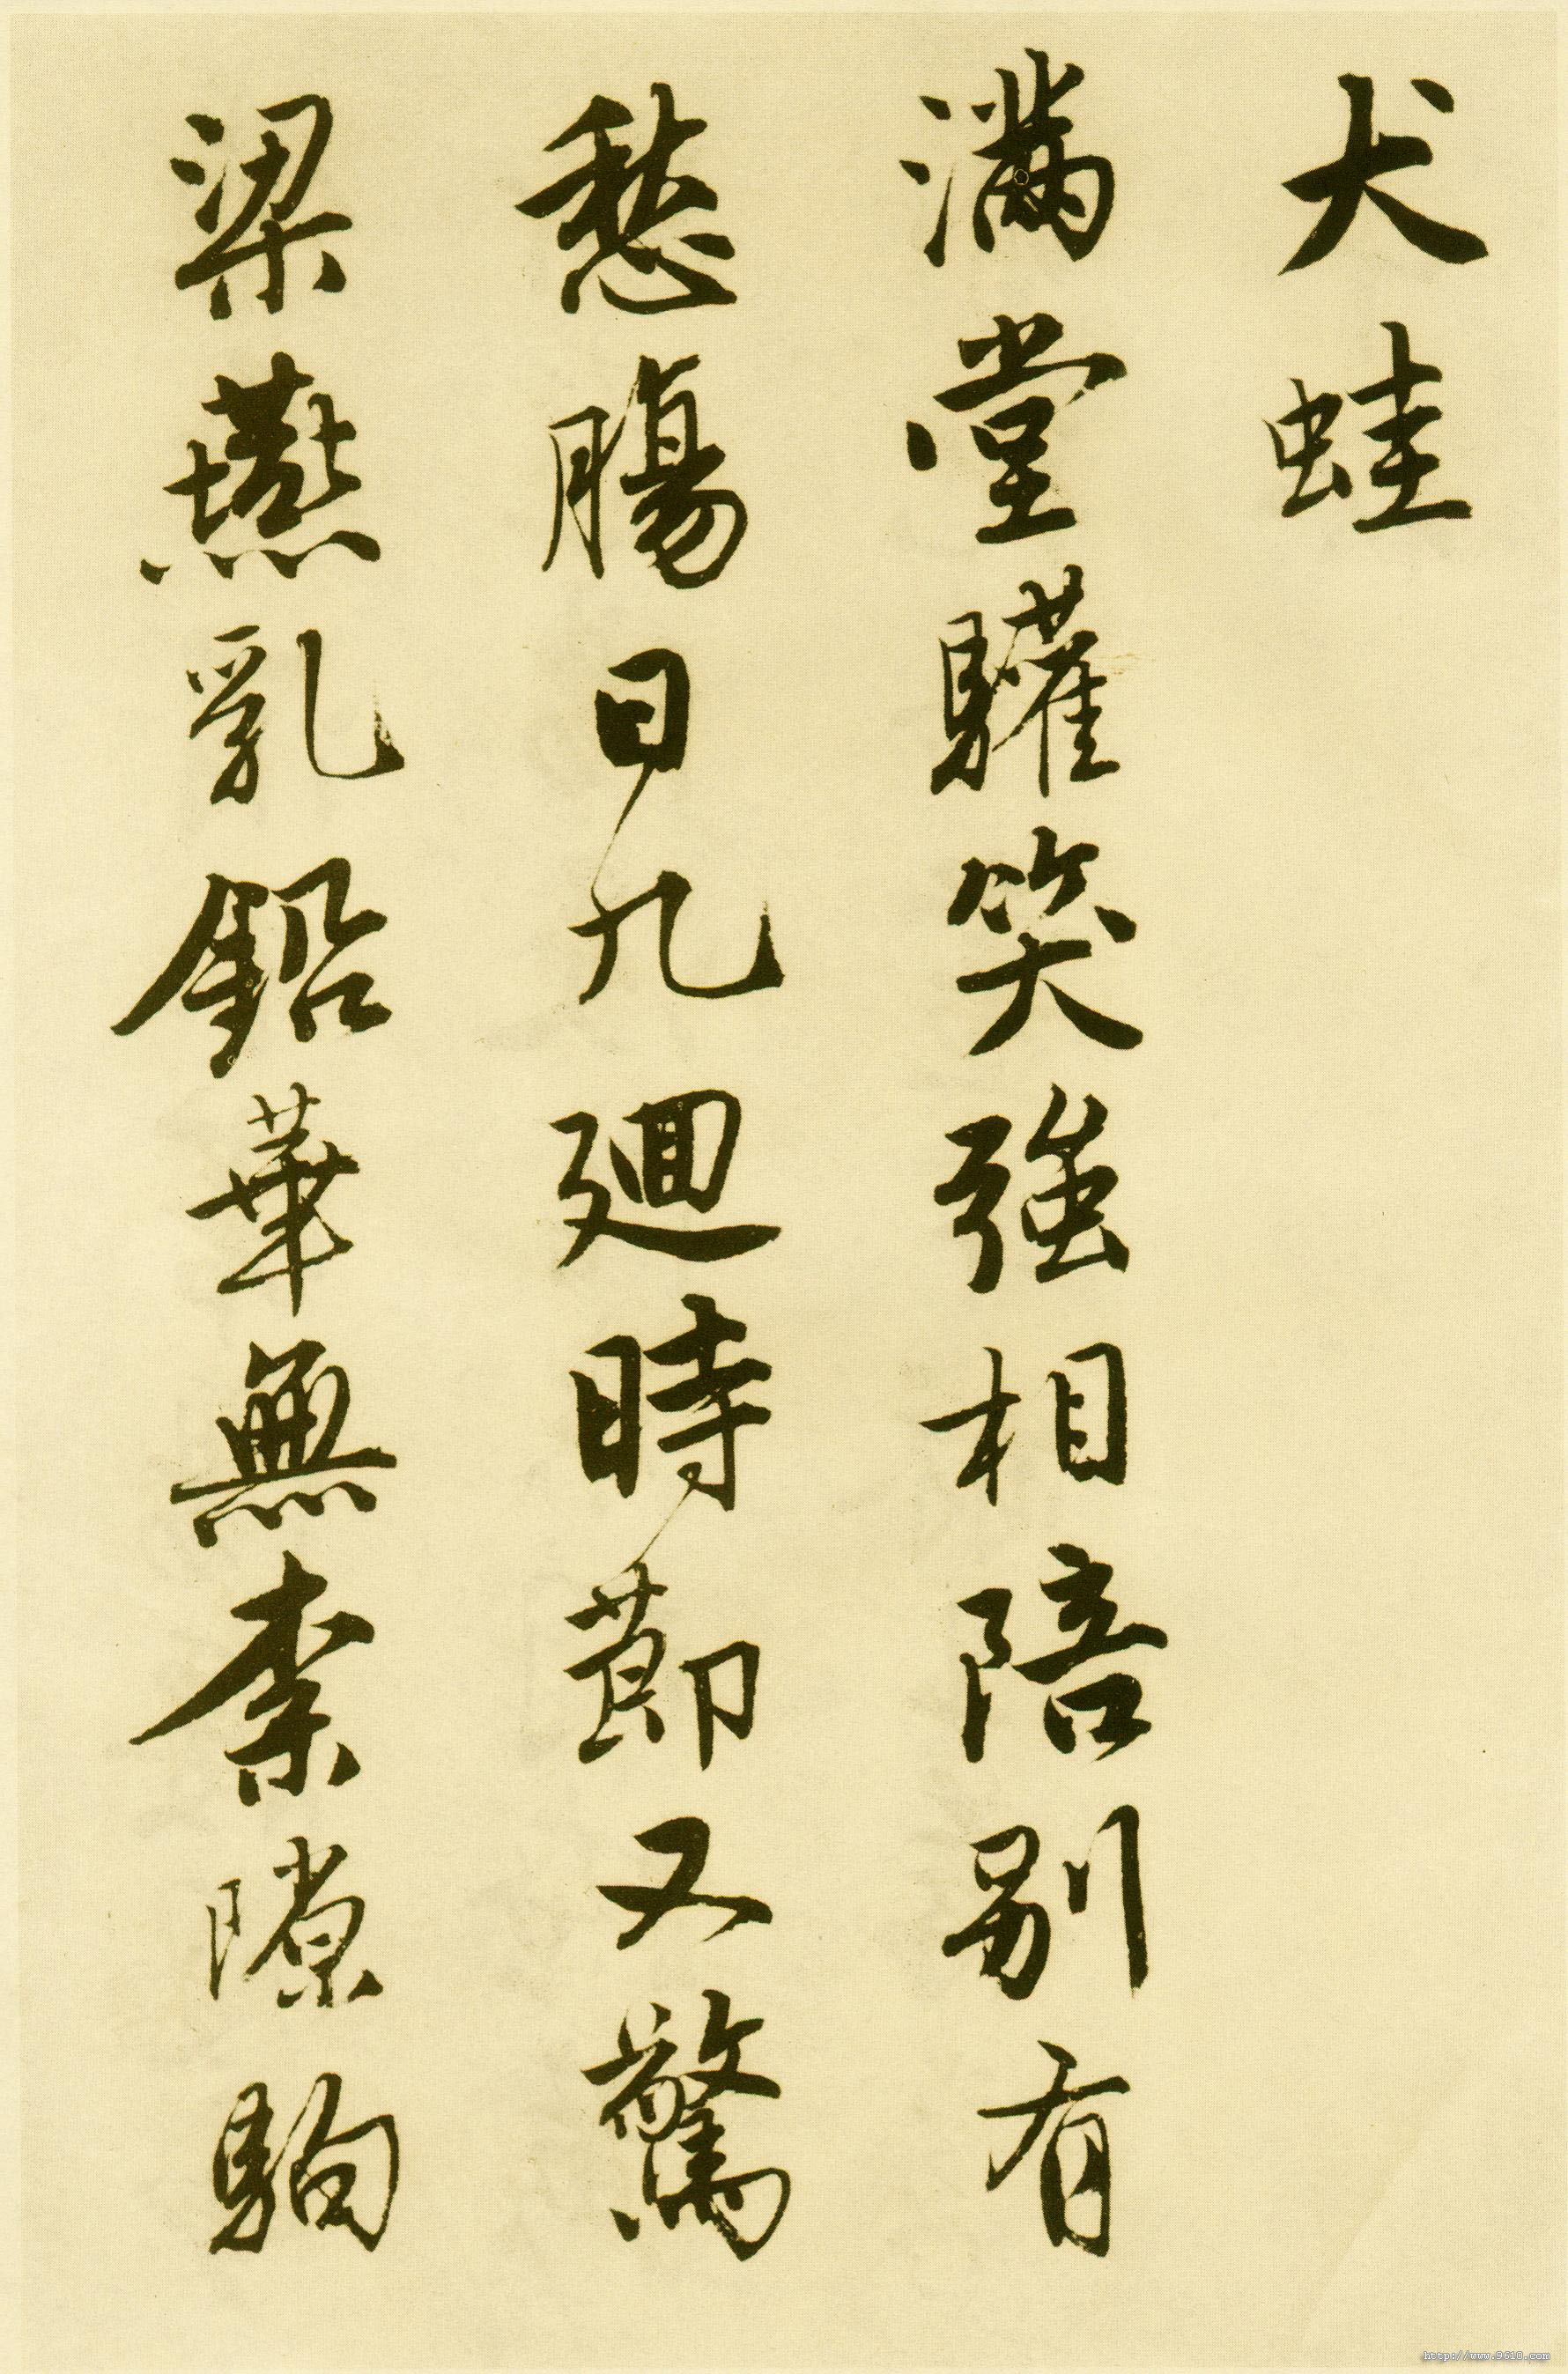 犬蛙
滿堂驩笑強相陪別有
愁腸日九廻時節又驚
梁燕乳鉛華無柰隙駒
http://www.9610.com